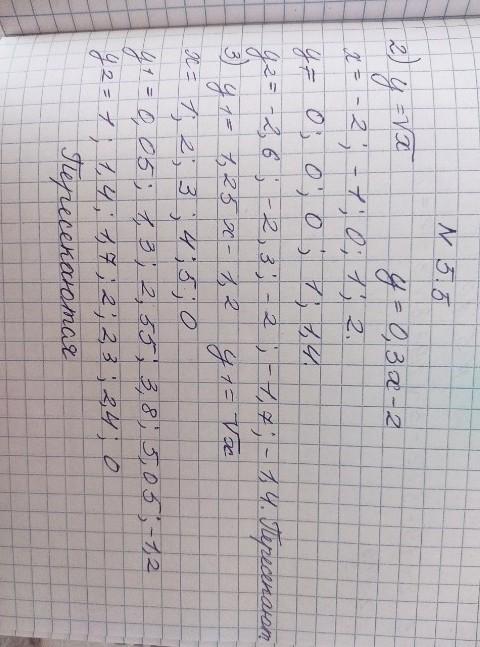 N 5.5
2) y = √x y = 0,3x - 2
x = -2; -1; 0; 1; 2.
y1 = 0; 0; 0; 1; 1,4.
y2 = -2,6; -2,3; -2; -1,7; -1,4. Пересекают.
3) y1 = 1,25x - 1,2 y1 = √x
x = 1; 2; 3; 4; 5; 0
y1 = 0,05; 1,3; 2,55; 3,8; 5,05; -1,2
y2 = 1; 1,4; 1,7; 2; 2,3; 2,4; 0
Пересекаются